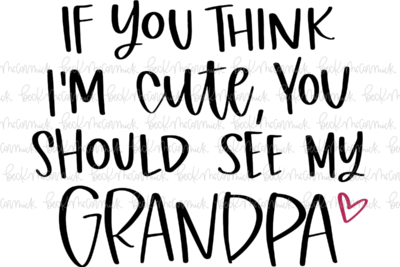 IF YOU THINK
I'M cute, YOU
SHOULD SEE MY
GRANDPA